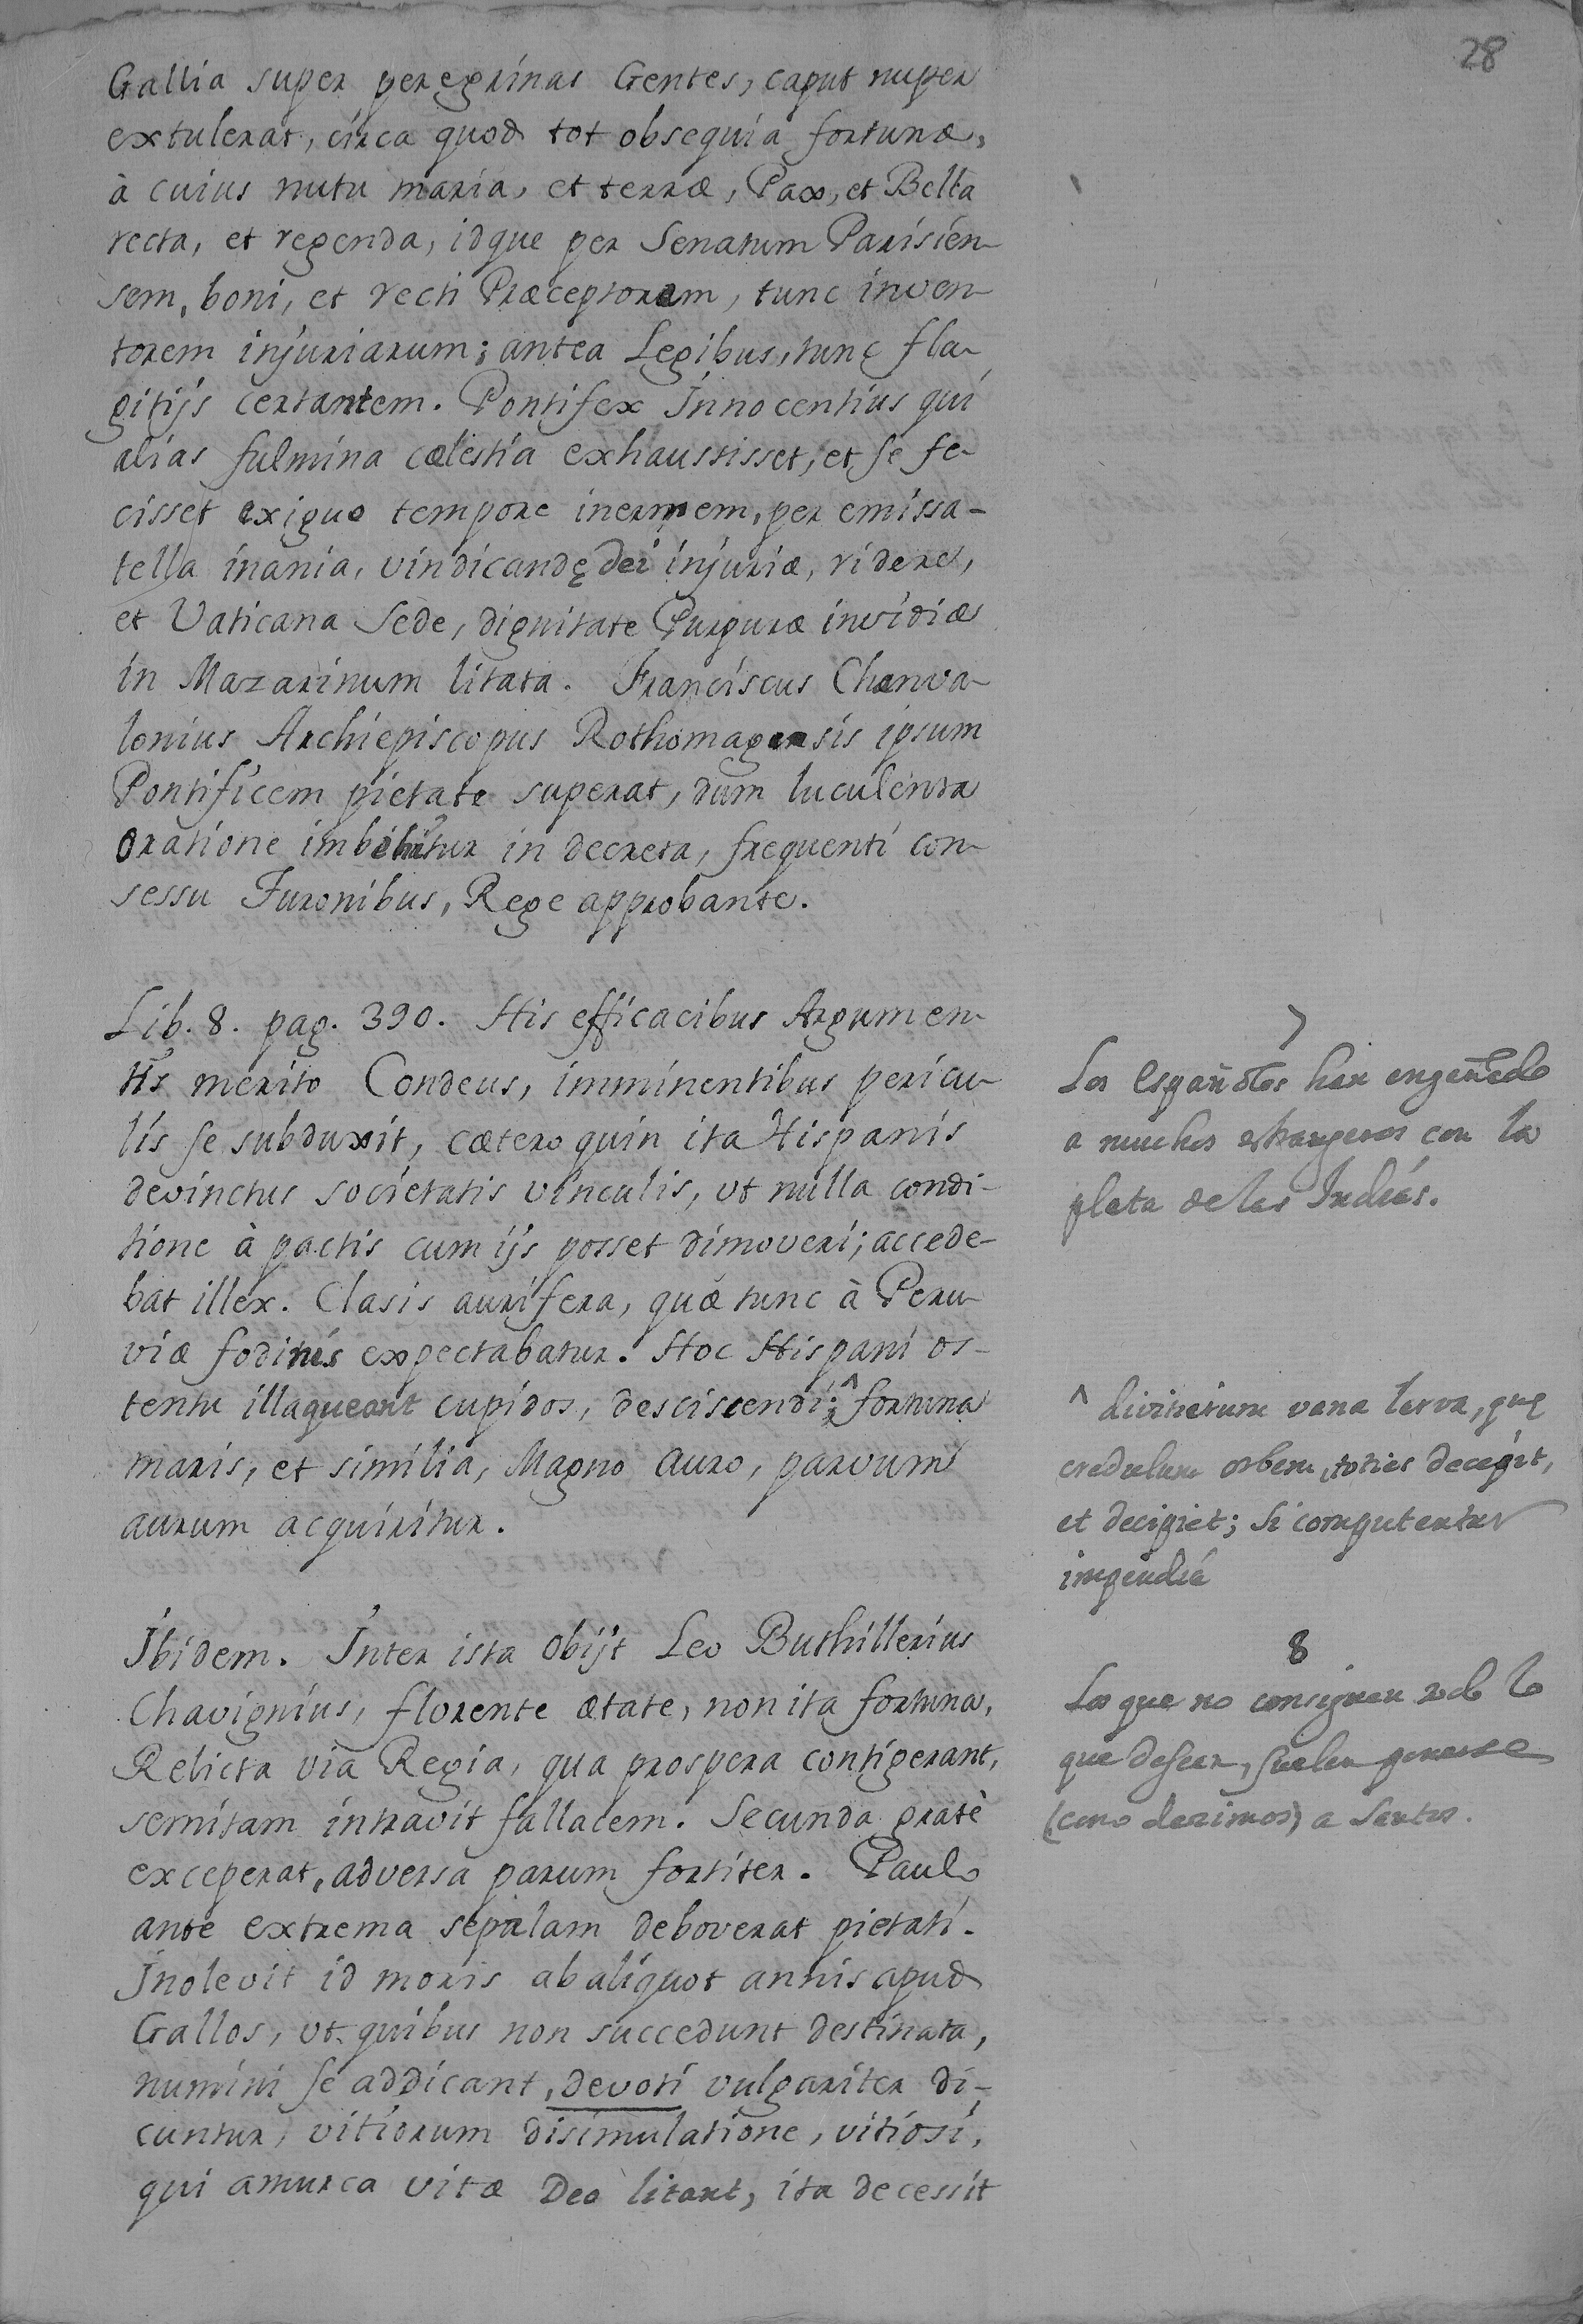 28
Gallia super peregrinas Gentes, caput nuper
extulerat, circa quod tot obsequia fortunæ,
à cuius nutu maria, et terræ, Pax, et Bella
recta, et regenda, idque per Senatum Parisien-
sem, boni, et recti Præceptorem, tunc inven-
torem injuriarum; antea Legibus, tunc fla-
gitijs certantem. Pontifex Innocentius qui
alias fulmina cælestia exhaussisset, et se fe-
cisset exiguo tempore inermem, per emissa-
tella inania, vindicandę dei injuriæ, ridere,
et Vaticana Sede, dignitate Purpuræ invidiæ
in Mazarinum litata. Franciscus Chanva-
lonius Archiepiscopus Rothomagensis ipsum
Pontificem pietate superat, dum luculenta
oratione in decreta, frequenti con-
sessu Turonibus, Rege approbante.
Lib. 8. pag. 390. His efficacibus Argumen-
tis merito Condeus, imminentibus pericu-
lis se subduxit, cætero quin ita Hispanis
devinctus societatis vinculis, vt nulla condi-
tione à pactis cum ijs posset dimoveri; accede-
bat illex. Clasis aurifera, quæ tunc à Peru-
viæ fodinis expectabatur. Hoc Hispani os-
tentu illaqueant cupidos, desciscendi; ^ fortuna
maris, et similia, Magno auro, parvum
aurum acquiritur.
7
Los españoles han engañado
a muchos estrangeros con la
plata de las Indias.
^ divitiarum vana larva, quę
credulum orbem, toties decepit,
et decipiet; si computentur
impendia
Ibidem. Inter ista obijt Leo Buthillerius
Chavignius, florente ætate, non ita fortuna,
Relicta via Regia, qua prospera contigerant,
semitam intravit fallacem. Secunda gratè
exceperat, adversa parum fortiter. Paulo
ante extrema se palam deboverat pietati.
Inolevit id moris ab aliquot annis apud
Gallos, vt quibus non succedunt destinata,
numini se addicant, devoti vulgariter di-
cuntur, vitiorum disimulatione, vitiosi,
qui amurca vitæ Deo litant, ita decessit
8
Los que no consiguen todo lo
que desean, suelen ponerse
(como dezimos) a Santos.